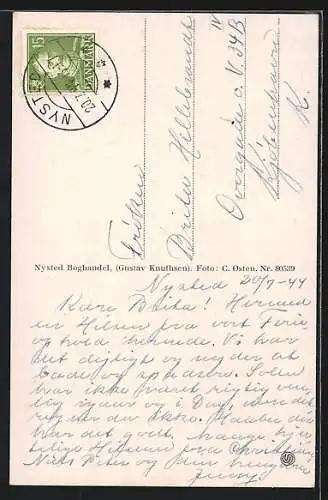 15
DANMARK
NYSTED
20.7
Frøken
Brita Hillebrandt
Overgade c. V. 34B IV
København
K.
Nysted Boghandel, (Gustav Knuthsen). Foto: C. Østen. Nr. 80539
Nysted 20/7-44
Kære Brita! Hermed
en Hilsen fra vort Ferie
ophold hernede. Vi har
det dejligt og nyder at
bade og spadsere. Solen
har ikke været rigtig ven
lig og i Dag
regner det
har det godt. Mange
lige Hilsner fra
Niels Peter og
Jenny